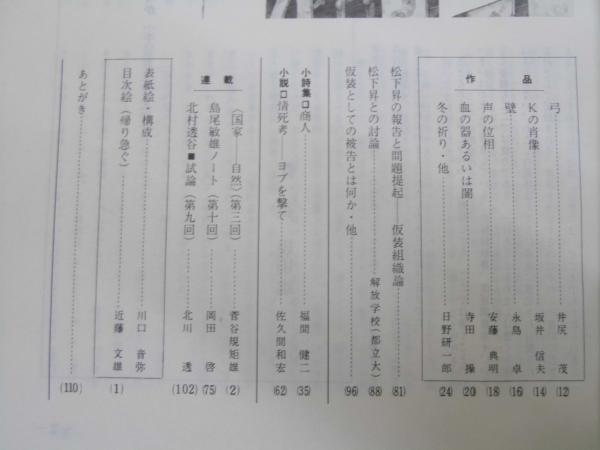 作品
弓……井尻 茂 (12)
Kの肖像……坂井信夫 (14)
壁……永島 卓 (16)
声の位相……安藤典明 (18)
血の器あるいは闇……寺田 操 (20)
冬の祈り・他……日野研一郎 (24)
松下昇の報告と問題提起――仮装組織論……(81)
松下昇との討論……解放学校(都立大) (88)
仮装としての被告とは何か・他……(96)
小詩集□商人……福間健二 (35)
小説□情死考――ヨブを撃て……佐久間和宏 (62)
連載
〈国家――自然〉(第三回)……菅谷規矩雄 (2)
島尾敏雄ノート(第十回)……岡田 啓 (75)
北村透谷■試論(第九回)……北川 透 (102)
表紙絵・構成……川口音弥
目次絵(帰り急ぐ)……近藤文雄 (1)
あとがき……(110)